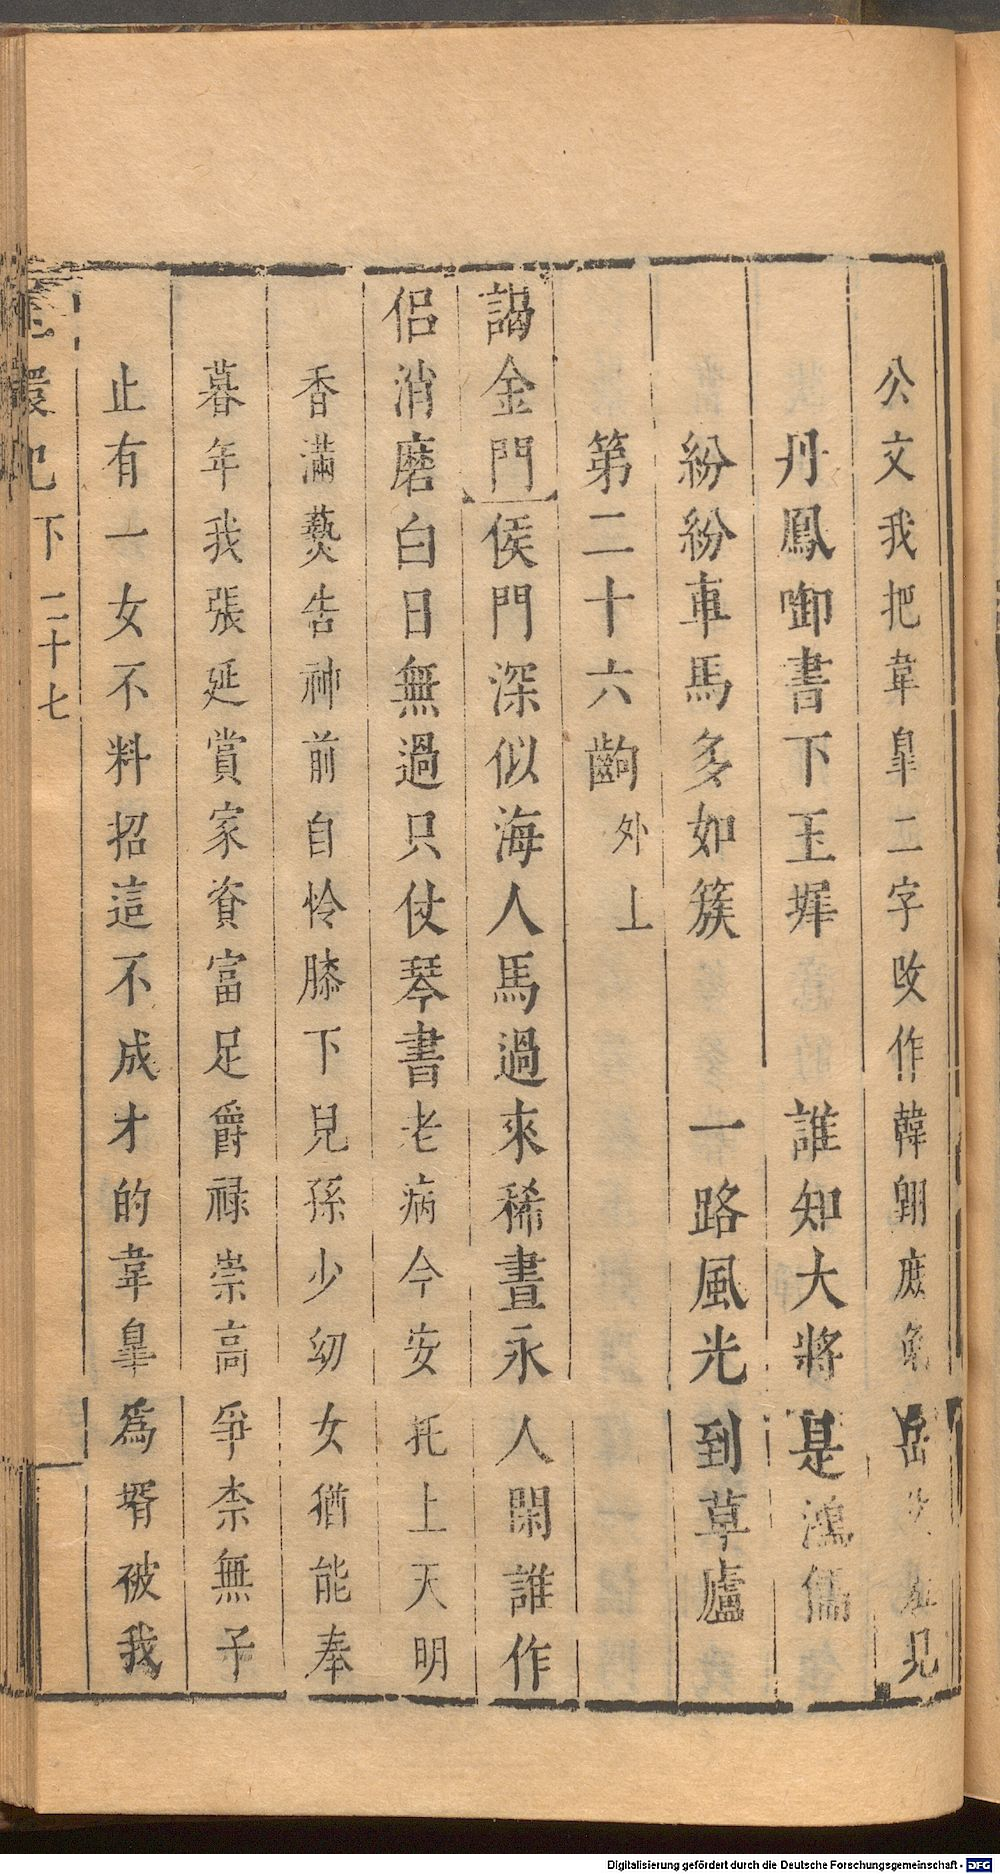 公文我把韋皐二字改作韓翃庶免岳丈在見
丹鳳啣書下玉墀 誰知大將是鴻儒
紛紛車馬多如簇 一路風光到草廬
第二十六齣 外上
謁金門 侯門深似海人馬過來稀晝永人閑誰作
侶消磨白日無過只仗琴書老病今安托上天明
香滿爇告神前自怜膝下兒孫少幼女猶能奉
暮年我張延賞家資富足爵祿崇高爭柰無子
止有一女不料招這不成才的韋皐爲壻被我
環記下 二十七
Digitalisierung gefördert durch die Deutsche Forschungsgemeinschaft - DFG